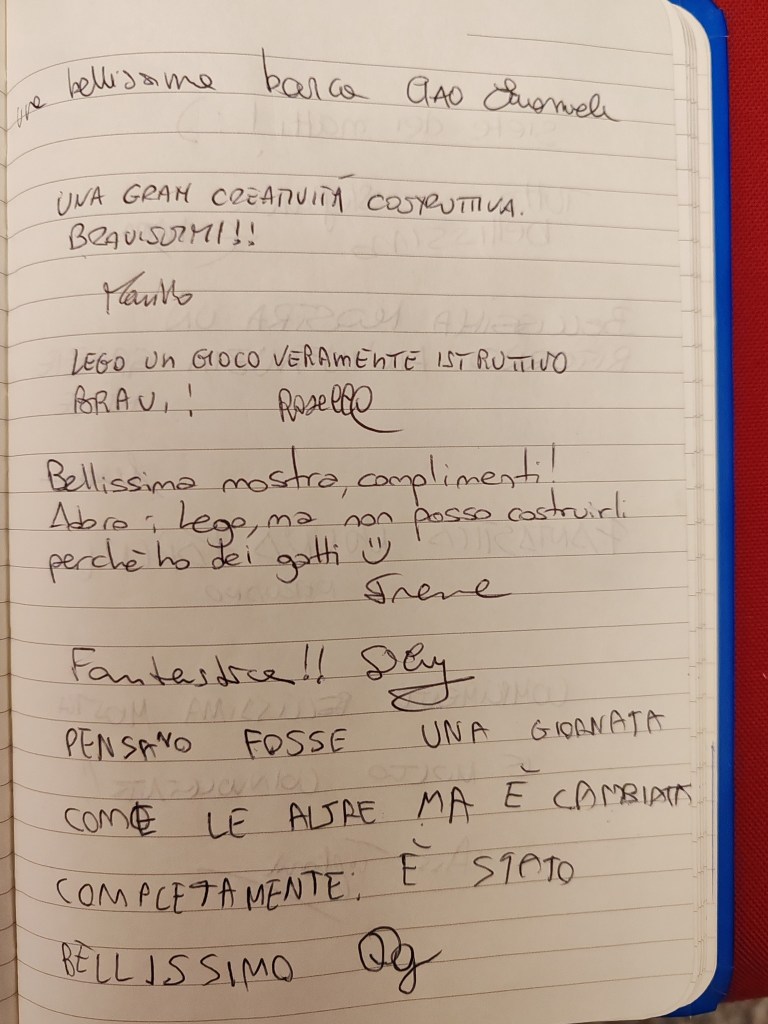 una bellissima barca CIAO Emanuele
UNA GRAN CREATIVITÀ COSTRUTTIVA.
BRAVISSIMI!!
LEGO UN GIOCO VERAMENTE ISTRUTTIVO
BRAVI! Rosella
Bellissima mostra, complimenti!
Adoro i Lego, ma non posso costruirli
perchè ho dei gatti
Irene
Fantastica!!
PENSANO FOSSE UNA GIORNATA
COME LE ALTRE MA È CAMBIATA
COMPLETAMENTE: È STATO
BELLISSIMO